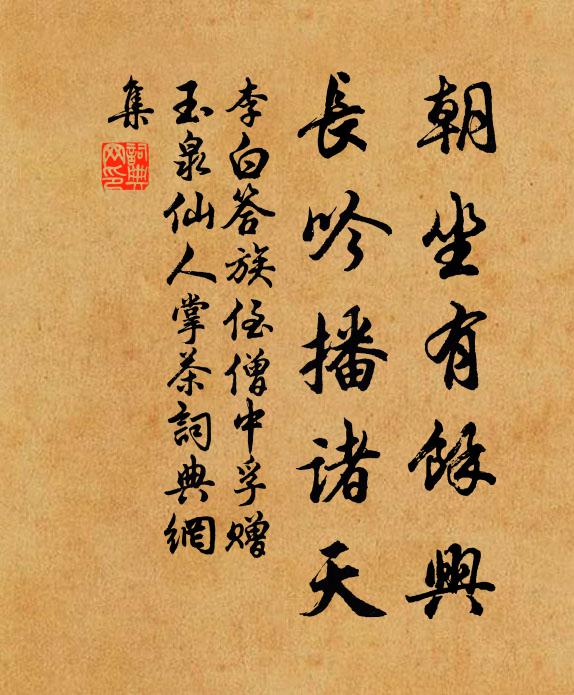 朝坐有餘興
長吟播諸天
李白答族侄僧中孚赠
玉泉仙人掌茶詞典網
集
詞典
网印